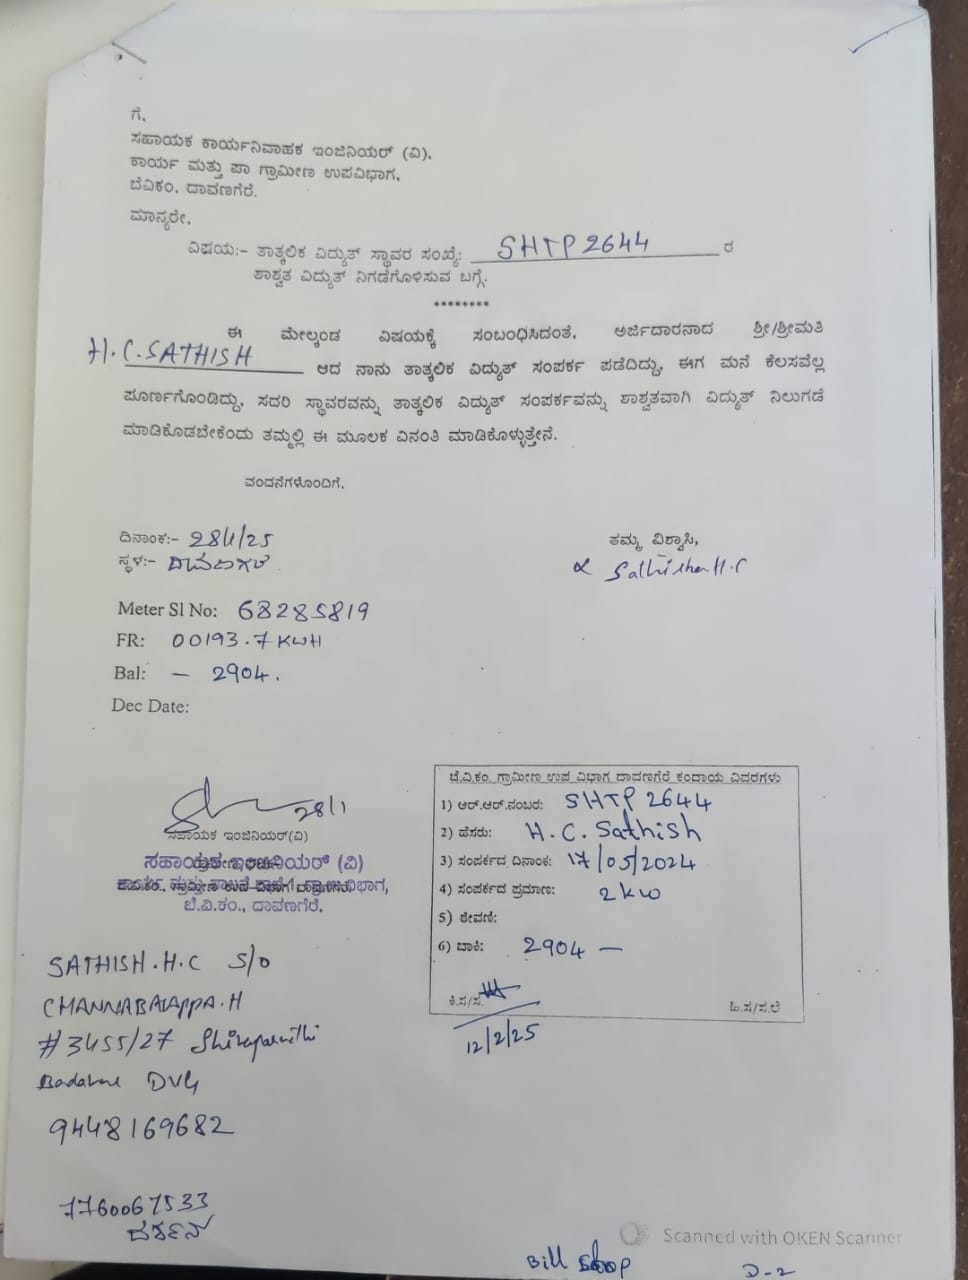 ಗೆ,
ಸಹಾಯಕ ಕಾರ್ಯನಿವಾಹಕ ಇಂಜಿನಿಯರ್ (ವಿ),
ಕಾರ್ಯ ಮತ್ತು ಪಾ ಗ್ರಾಮೀಣ ಉಪವಿಭಾಗ,
ಬೆವಿಕಂ, ದಾವಣಗೆರೆ.
ಮಾನ್ಯರೇ,
ವಿಷಯ:- ತಾತ್ಕಲಿಕ ವಿದ್ಯುತ್ ಸ್ಥಾವರ ಸಂಖ್ಯೆ: SHTP 2644 ರ
ಶಾಶ್ವತ ವಿದ್ಯುತ್ ನಿಗಡೆಗೊಳಿಸುವ ಬಗ್ಗೆ.
********
ಈ ಮೇಲ್ಕಂಡ ವಿಷಯಕ್ಕೆ ಸಂಬಂಧಿಸಿದಂತೆ, ಅರ್ಜಿದಾರನಾದ ಶ್ರೀ/ಶ್ರೀಮತಿ
H.C.SATHISH ಆದ ನಾನು ತಾತ್ಕಲಿಕ ವಿದ್ಯುತ್ ಸಂಪರ್ಕ ಪಡೆದಿದ್ದು, ಈಗ ಮನೆ ಕೆಲಸವೆಲ್ಲ
ಪೂರ್ಣಗೊಂಡಿದ್ದು, ಸದರಿ ಸ್ಥಾವರವನ್ನು ತಾತ್ಕಲಿಕ ವಿದ್ಯುತ್ ಸಂಪರ್ಕವನ್ನು ಶಾಶ್ವತವಾಗಿ ವಿದ್ಯುತ್ ನಿಲುಗಡೆ
ಮಾಡಿಕೊಡಬೇಕೆಂದು ತಮ್ಮಲ್ಲಿ ಈ ಮೂಲಕ ವಿನಂತಿ ಮಾಡಿಕೊಳ್ಳುತ್ತೇನೆ.
ವಂದನೆಗಳೊಂದಿಗೆ,
ದಿನಾಂಕ:- 28/1/25
ತಮ್ಮ ವಿಶ್ವಾಸಿ,
ಸ್ಥಳ:- ದಾವಣಗೆರೆ
Meter Sl No: 68285819
FR: 00193.7 KWH
Bal: - 2904.
Dec Date:
28/1
ಸಹಾಯಕ ಇಂಜಿನಿಯರ್(ವಿ)
ಸಹಾಯಕ ಇಂಜಿನಿಯರ್ (ವಿ)
ಬೆ.ವಿ.ಕಂ., ದಾವಣಗೆರೆ.
ಬೆ.ವಿ.ಕಂ. ಗ್ರಾಮೀಣ ಉಪ ವಿಭಾಗ ದಾವಣಗೆರೆ ಕಂದಾಯ ವಿವರಗಳು
1) ಆರ್.ಆರ್.ನಂಬರ: SHTP 2644
2) ಹೆಸರು: H.C. Sathish
3) ಸಂಪರ್ಕದ ದಿನಾಂಕ: 17/05/2024
4) ಸಂಪರ್ಕದ ಪ್ರಮಾಣ: 2 KW
5) ಠೇವಣಿ:
6) ಬಾಕಿ: 2904 -
ಕಿ.ಸ/ಸ.
ಹಿ.ಸ/ಸ.ಲೆ
12/2/25
SATHISH.H.C S/O
CHANNABASAPPA.H
#3455/27
DVG
9448169682
7760067533
ದರ್ಶನ್
Scanned with OKEN Scanner
Bill stop
D-2